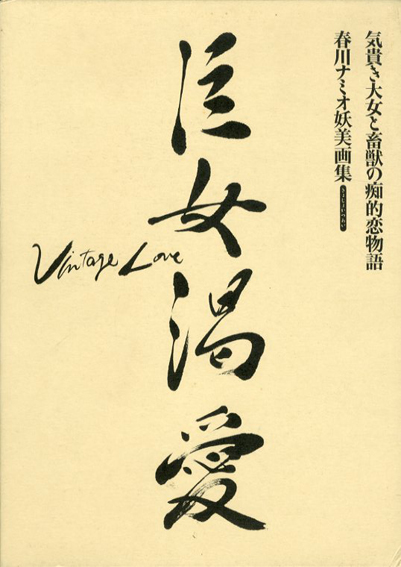 気貴き大女と畜獣の痴的恋物語
春川ナミオ妖美画集
巨女渇愛
Vintage Love